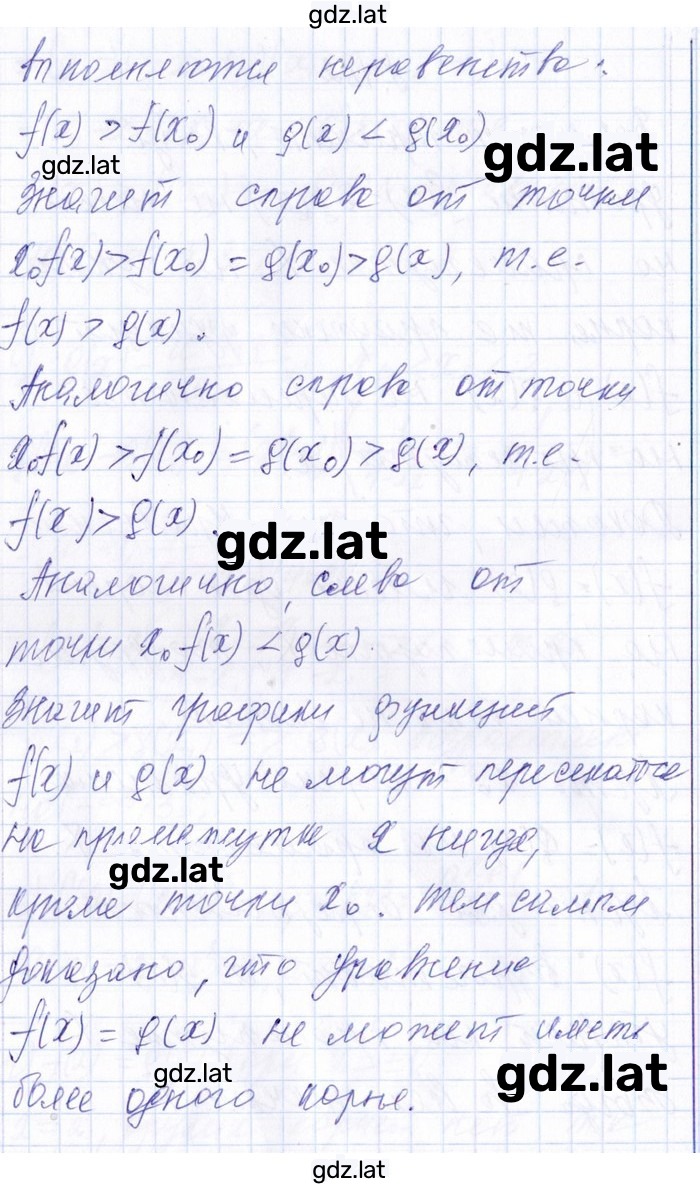 gdz.lat
выполняются неравенства:
f(x) > f(x₀) и g(x) < g(x₀)
gdz.lat
gdz.lat
Значит справа от точки
x₀ f(x) > f(x₀) = g(x₀) > g(x), т.е.
f(x) > g(x).
Аналогично справа от точки
x₀ f(x) > f(x₀) = g(x₀) > g(x), т.е.
f(x) > g(x).
gdz.lat
Аналогично, слева от
точки x₀ f(x) < g(x).
Значит графики функций
f(x) и g(x) не могут пересекаться
на промежутке X нигде,
gdz.lat
кроме точки x₀. Тем самым
доказано, что уравнение
f(x) = g(x) не может иметь
gdz.lat
gdz.lat
более одного корня.
gdz.lat